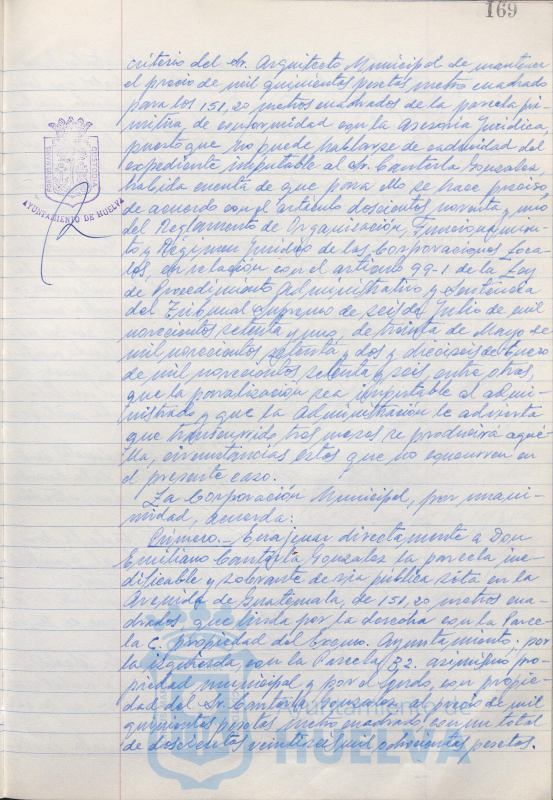 169
criterio del Sr. Arquitecto Municipal de mantener
el precio de mil quinientas pesetas metro cuadrado
para los 151,20 metros cuadrados de la parcela pri-
mitiva de conformidad con la Asesoría Jurídica,
puesto que no puede hablarse de caducidad del
expediente imputable al Sr. Cantarla Gonzalez,
habida cuenta de que para ello se hace preciso,
de acuerdo con el artículo doscientos noventa y uno
del Reglamento de Organización, Funcionamien-
to y Régimen Jurídico de las Corporaciones Loca-
les, en relación con el artículo 99-1 de la Ley
de Procedimiento Administrativo y Sentencia
del Tribunal Supremo de seis de Julio de mil
novecientos setenta y uno, de treinta de Mayo de
mil novecientos setenta y dos y dieciseis de Enero
de mil novecientos setenta y seis, entre otras,
que la paralización sea imputable al admi-
nistrado y que la Administración le advierta
que transcurrido tres meses se producirá aqué-
lla, circunstancias estas que no concurren en
el presente caso.
La Corporación Municipal, por unani-
midad, acuerda:
Primero.- Enajenar directamente a Don
Emiliano Cantarla Gonzalez la parcela ine-
dificable y sobrante de vía pública sita en la
Avenida de Guatemala, de 151,20 metros cua-
drados, que linda por la derecha con la Parce-
la C. propiedad del Excmo. Ayuntamiento; por
la izquierda, con la Parcela B2. asimismo pro-
piedad municipal y por el fondo, con propie-
dad del Sr. Cantarla Gonzalez, al precio de mil
quinientas pesetas metro cuadrado con un total
de doscientas veintiseis mil ochocientas pesetas.
AYUNTAMIENTO DE HUELVA
HUELVA